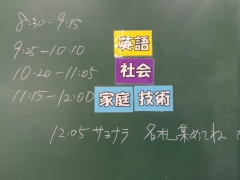 8:30-9:15
9:25-10:10 英語
10:20-11:05 社会
11:15-12:00 家庭 技術
12:05 サヨナラ 名札集めてね